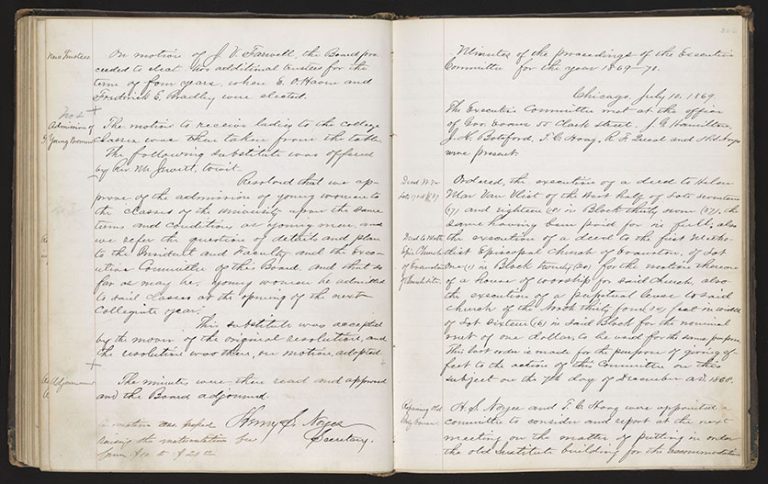 New Trustees
On motion of J. V. Farwell the Board pro-
ceeded to elect two additional trustees for the
term of four years, when E. O. Haven and
Frederick E. Bradley were elected.
Admission of
Young Women
The motion to receive ladies to the college
classes was then taken from the table
The following substitute was offered
by Rev. Mr. Jewett, to wit.
Resolved that we ap-
prove of the admission of young women to
the classes of the University upon the same
terms and conditions as young men, and
we refer the question of details and plan
to the President and Faculty and the Exec-
utive Committee of the Board, and that so
far as may be, young women be admitted
to said classes at the opening of the next
Collegiate year.
This substitute was accepted
by the mover of the original resolution, and
the resolution was then, on motion adopted.
Adjournment
The minutes were then read and approved
and the Board adjourned.
Henry S. Noyes
Secretary.
motion was
raising the matriculation fee
from
Minutes of the proceedings of the Executive
Committee for the year 1869-70.
Chicago, July 10, 1869.
The Executive Committee met at the office
of Gov. Evans Clark Street. J. G. Hamilton,
J. K. Botsford, T. C. Hoag, R. F. Queal and H. S. Noyes
were present.
Ordered, the execution of a deed to Helen
Mar Van Vliet of the West half of Lots seventeen
(17) and eighteen (18) in Block thirty seven (37), the
same having been paid for in full; also
the execution of a deed to the first Metho-
dist Episcopal Church of Evanston, of Lot
one (1) in Block twenty (20), for the erection thereon
of a House of worship for said Church, also
the execution of a perpetual lease to said
church of the North thirty four (34) feet in width
of Lot Sixteen (16) in said Block for the nominal
rent of one dollar to be used for the same purpose
This last order is made for the purpose of giving ef-
fect to the action of this Committee on this
subject on the 7th day of December A.D. 1868.
H. S. Noyes and T. C. Hoag were appointed a
committee to consider and report at the next
meeting on the matter of putting in order
the old Institute building for the accommodation